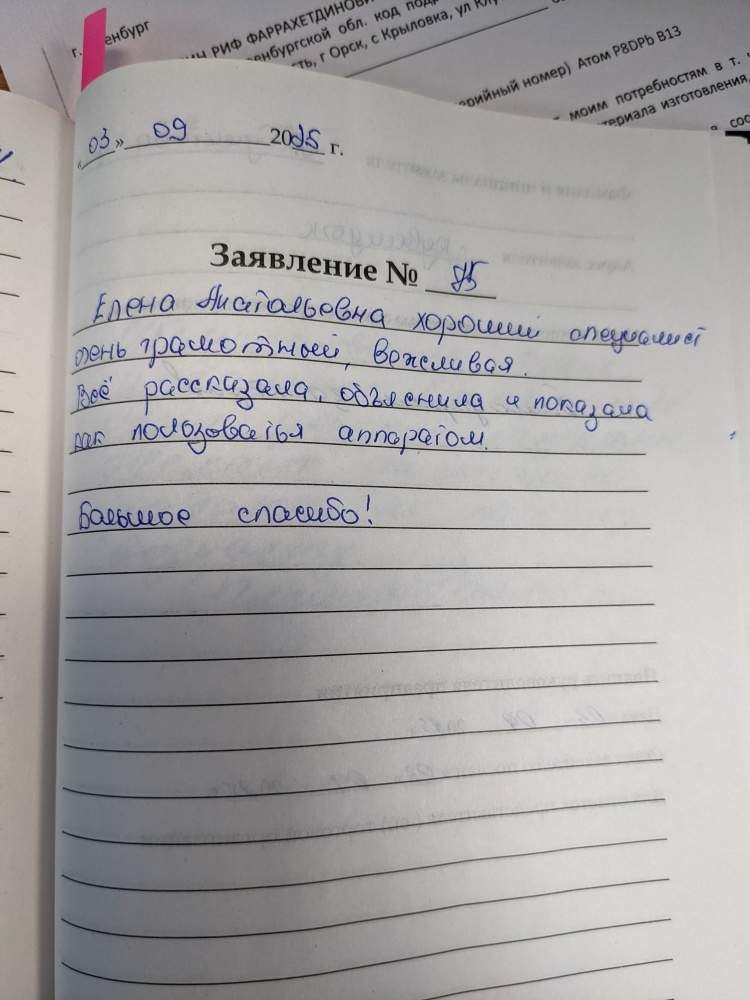 г.
енбург
ИН РИФ ФАРРАХЕТДИНОВИ
енбургской обл. код под
сть, г Орск, с Крыловка, ул Клу
ерийный номер) Атом P8DPb B13
моим потребностям в т. ч
териала изготовления,
соо
«03» 09 2025 г.
Заявление № 25
Елена Анатольевна хороший специалист
очень грамотный, вежливая.
Всё рассказала, объяснила и показала
как пользоваться аппаратом.
Большое спасибо!